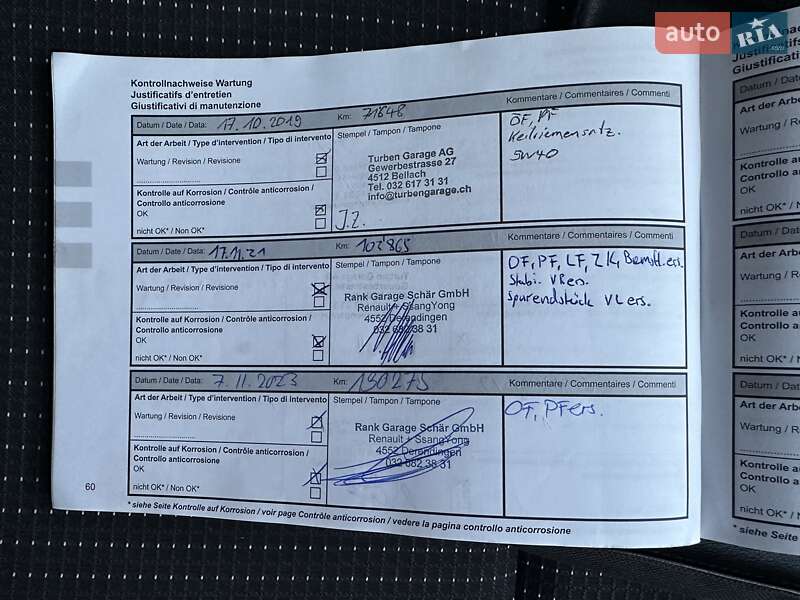 auto RIA .com
Kontrollnachweise Wartung
Justificatifs d'entretien
Giustificativi di manutenzione
Datum / Date / Data: 17.10.2019 Km: 71848 Kommentare / Commentaires / Commenti
Art der Arbeit / Type d'intervention / Tipo di intervento
Stempel / Tampon / Tampone
ÖF, PF
Keilriemensatz.
5W40
Wartung / Revision / Revisione
Turben Garage AG
Gewerbestrasse 27
4512 Bellach
Tel. 032 617 31 31
info@turbengarage.ch
J.Z.
Kontrolle auf Korrosion / Contrôle anticorrosion /
Controllo anticorrosione
OK
nicht OK* / Non OK*
Datum / Date / Data: 17.11.21 Km: 102865 Kommentare / Commentaires / Commenti
Art der Arbeit / Type d'intervention / Tipo di intervento
Stempel / Tampon / Tampone
ÖF, PF, LF, ZK, Bremsfl. ers.
Stabi. VR ers.
Spurendstück VL ers.
Wartung / Revision / Revisione
Rank Garage Schär GmbH
Renault + SsangYong
4552 Derendingen
032 682 38 31
Kontrolle auf Korrosion / Contrôle anticorrosion /
Controllo anticorrosione
OK
nicht OK* / Non OK*
Datum / Date / Data: 7.11.2023 Km: 130275 Kommentare / Commentaires / Commenti
Art der Arbeit / Type d'intervention / Tipo di intervento
Stempel / Tampon / Tampone
ÖF, PF ers.
Wartung / Revision / Revisione
Rank Garage Schär GmbH
Renault + SsangYong
4552 Derendingen
032 682 38 31
Kontrolle auf Korrosion / Contrôle anticorrosion /
Controllo anticorrosione
OK
nicht OK* / Non OK*
60
* siehe Seite Kontrolle auf Korrosion / voir page Contrôle anticorrosion / vedere la pagina controllo anticorrosione
Justificati
Giustificati
Datum / Date
Art der Arbeit
Wartung / Revisi
Kontrolle auf Ko
Controllo antico
OK
nicht OK* / Non O
Datum / Date
Art der Arbeit /
Wartung / Revisio
Kontrolle auf Ko
Controllo antico
OK
nicht OK* / Non O
Datum / Date
Art der Arbeit
Wartung / Revisi
Kontrolle auf Ko
Controllo antico
OK
nicht OK* / Non
* siehe Seite